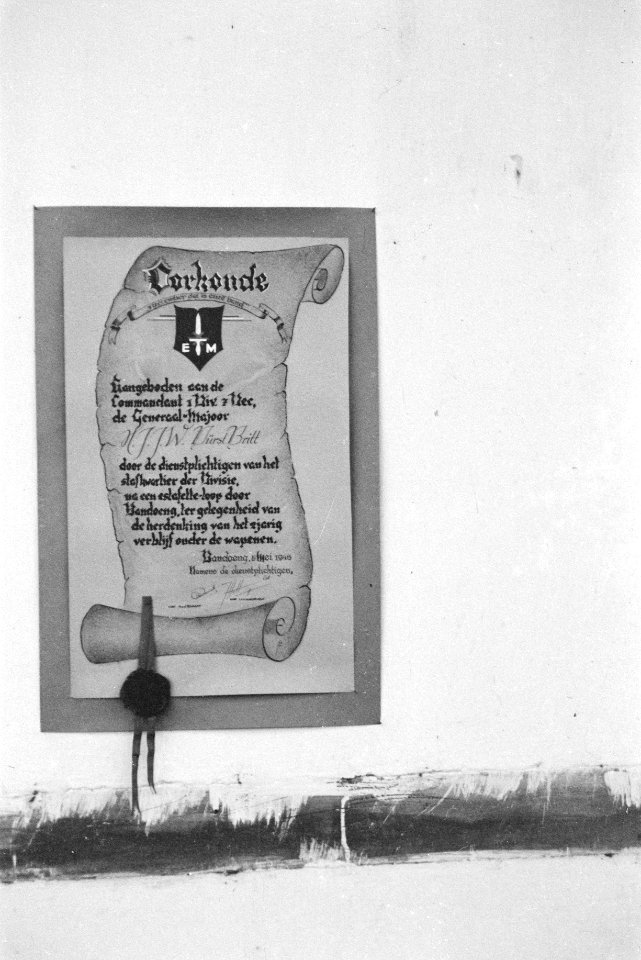 Oorkonde
E T M
Aangeboden aan de
Commandant 1 Div. 7 Dec,
de Generaal-Majoor
H.J.J.W. Dürst Britt
door de dienstplichtigen van het
stafkwartier der Divisie,
na een estafette-loop door
Bandoeng, ter gelegenheid van
de herdenking van het 2jarig
verblijf onder de wapenen.
Bandoeng, Mei 1948
Namens de dienstplichtigen,